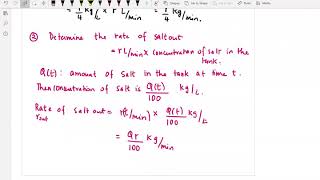 = 1/4 kg/L × r L/min = r/4 kg/min.
② Determine the rate of salt out
= r L/min × concentration of salt in the
tank.
Q(t): amount of salt in the tank at time t.
Then concentration of salt is Q(t)/100 kg/L.
Rate of salt out = r(L/min) × Q(t)/100 kg/L
r out
= Qr/100 kg/min